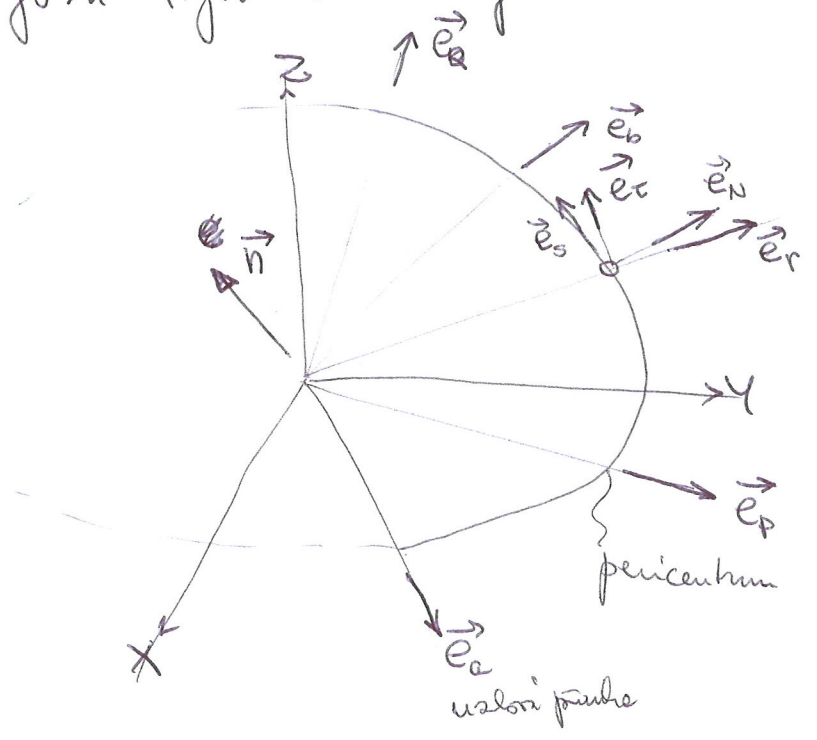 Z
e⃗_Q
e⃗_b
e⃗_τ
e⃗_s
e⃗_N
e⃗_r
n⃗
Y
e⃗_p
pericentrum
X
e⃗_a
uzlová přímka